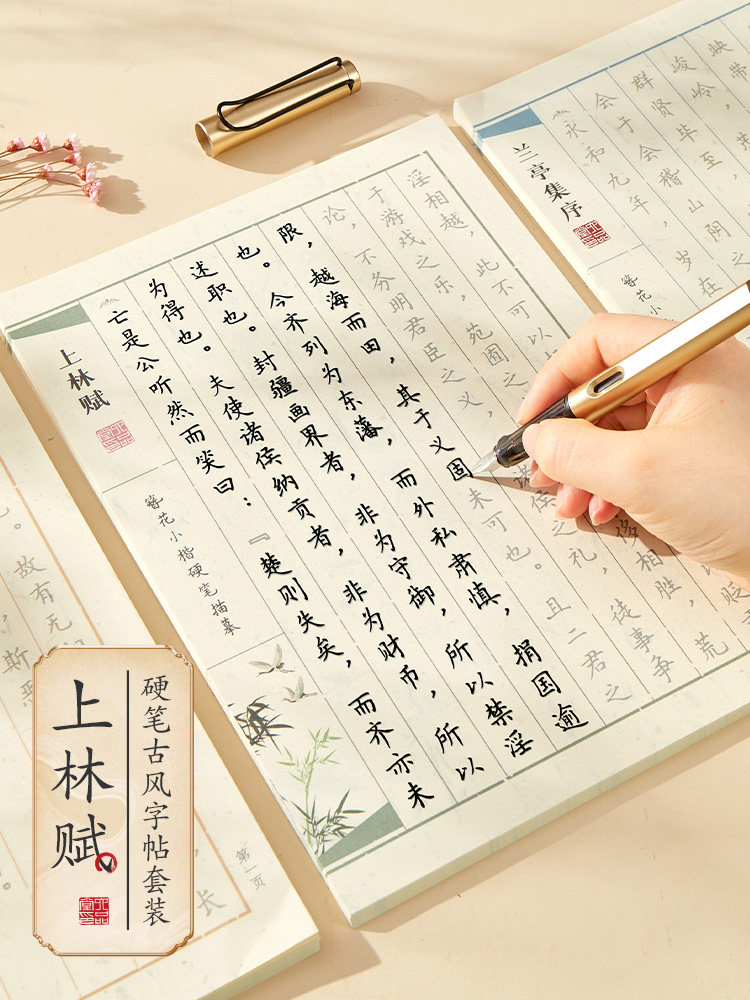 上林赋
簪花小楷硬笔描摹
亡是公听然而笑曰：『楚则失矣，而齐亦未
为得也。夫使诸侯纳贡者，非为财币，所以
述职也。封疆画界者，非为守御，所以禁淫
也。今齐列为东藩，而外私肃慎，捐国逾
限，越海而田，其于义固未可也。且二君之
论，不务明君臣之义，诸侯之礼，徒事争
于游戏之乐，苑囿之侈相胜，荒
淫相越，此不可以贬
第一页
兰亭集序
簪花小
永和九年，岁在
会于会稽山阴之
群贤毕至，
峻岭，
映带
故有无
斯恶
长
上林赋
硬笔古风字帖套装